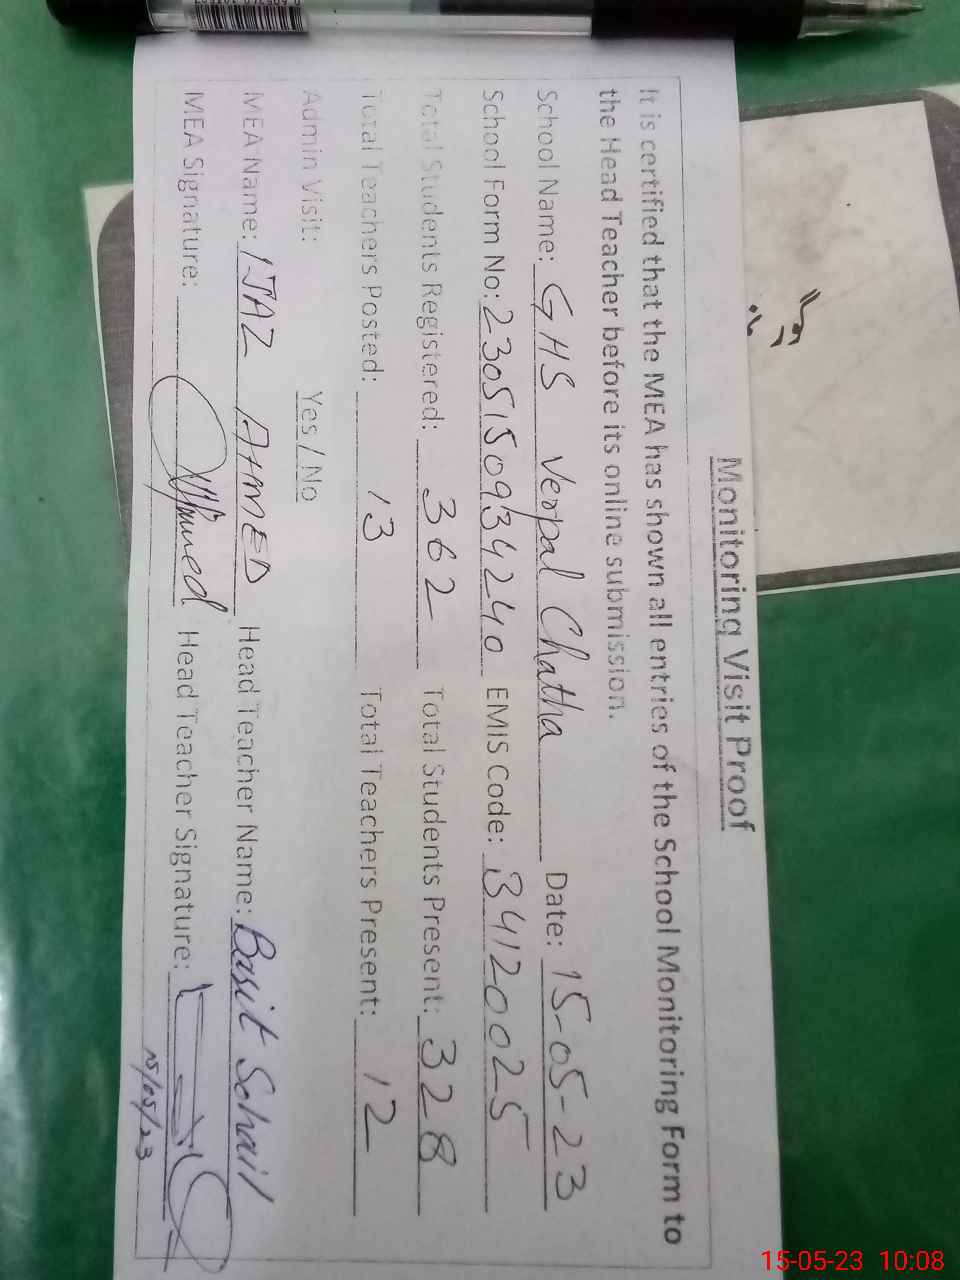 Monitoring Visit Proof
It is certified that the MEA has shown all entries of the School Monitoring Form to
the Head Teacher before its online submission.
School Name: GHS Verpal Chatha Date: 15-05-23
School Form No: 2305150934240 EMIS Code: 34120025
Total Students Registered: 362 Total Students Present: 328
Total Teachers Posted: 13 Total Teachers Present: 12
Admin Visit: Yes / No
MEA Name: IJAZ AHMED Head Teacher Name: Basit Sohail
MEA Signature: Ahmed Head Teacher Signature:
15/05/23
15-05-23 10:08